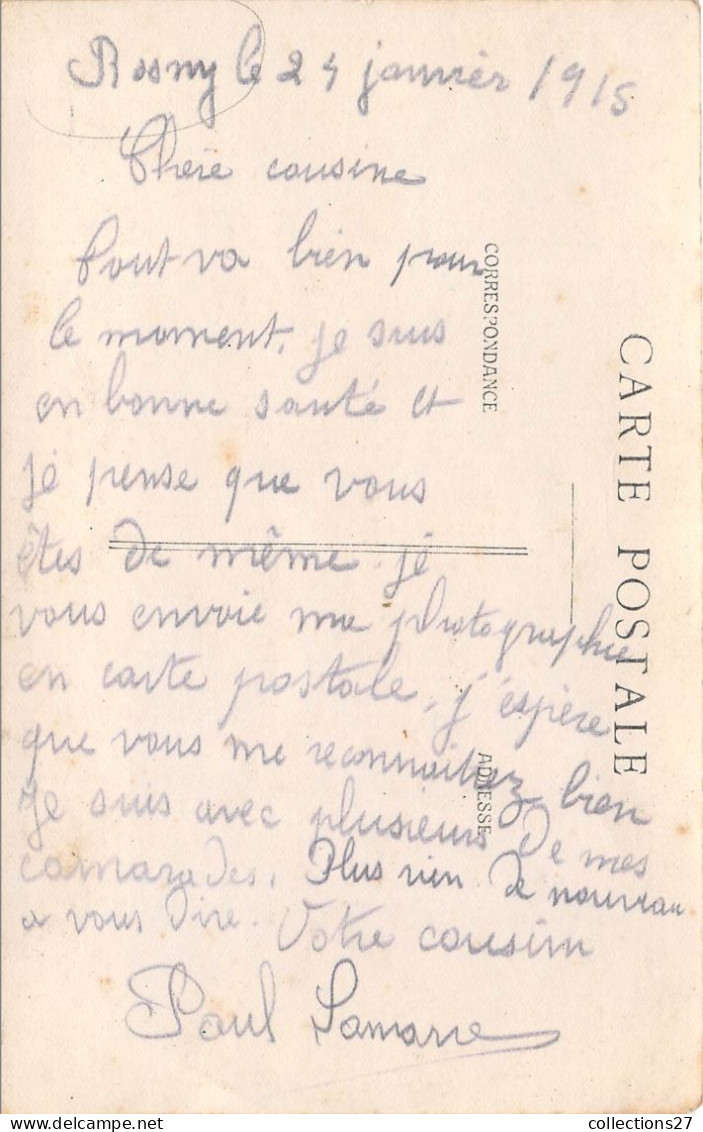 Rosny le 24 janvier 1915
Chère cousine
Tout va bien pour
le moment, je suis
en bonne santé et
je pense que vous
êtes de même. je
vous envoie ma photographie
en carte postale, j'espère
que vous me reconnaitrez bien
Je suis avec plusieurs de mes
camarades. Plus rien de nouveau
a vous dire. Votre cousin
Paul Lamarre
CORRESPONDANCE
ADRESSE
CARTE POSTALE
delcampe.net
collections27